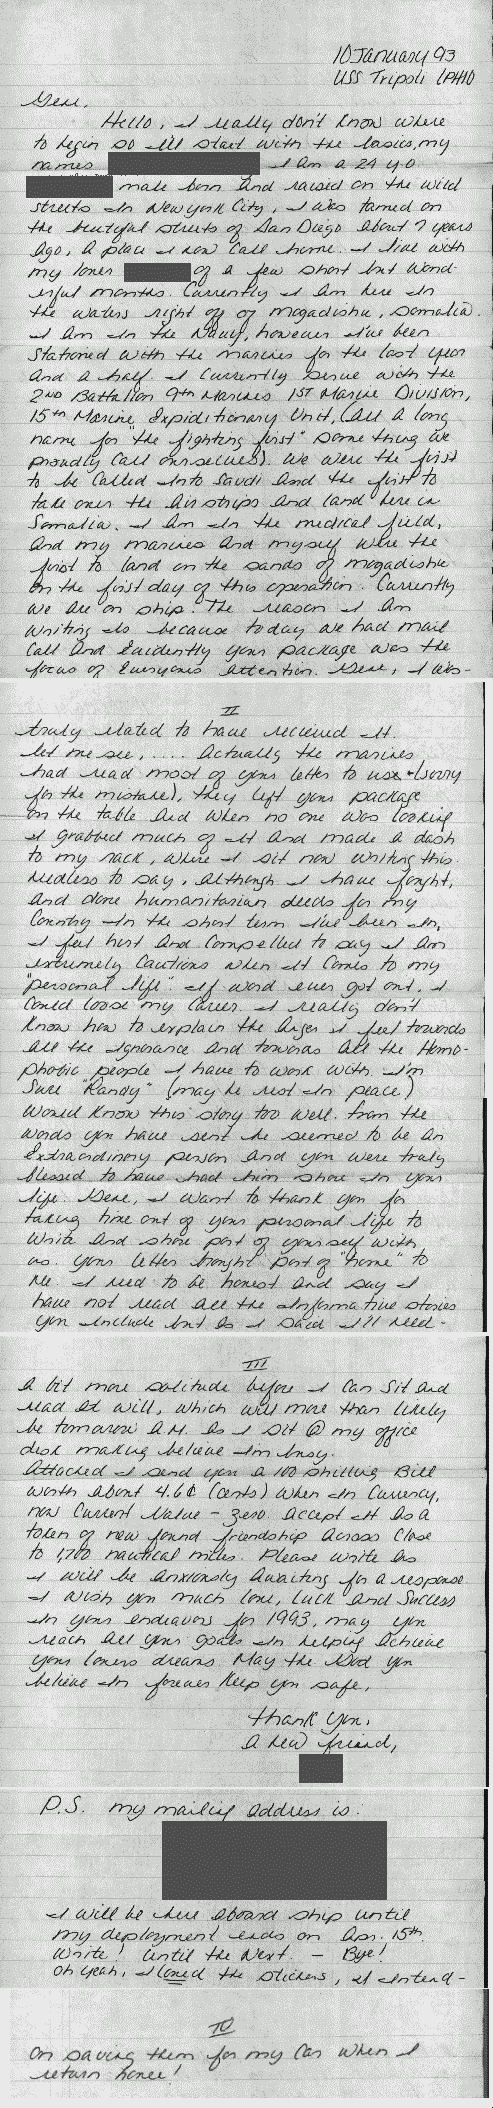 10 January 93
USS Tripoli LPH10
Gene,
Hello, I really don't know where
to begin so I'll start with the basics, my
names I am a 24 y.o.
male born and raised on the wild
streets In New York City, I was tamed on
the beutiful streets of San Diego about 7 years
Ago, A place I now call home. I live with
my lover of a few short but wond-
erful months. Currently I Am here In
the waters right off of mogadishu, Somalia.
I am In the Navy, however I've been
Stationed with the marines for the last year
And a half. I Currently serve with the
2ND Battalion 9th Marines 1ST Marine Division,
15th Marine Expiditionary Unit, (All A long
name for "the fighting first" Something we
proudly Call ourselves). We were the first
to be Called Into Saudi And the first to
take over the Air strips And land here in
Somalia. I Am In the medical field,
And my marines And myself were the
first to land on the sands of mogadishu
on the first day of this operation. Currently
we Are on ship. The reason I Am
writing Is because today we had mail
Call And Evidently your package was the
focus of Everyones Attention. Gene, I was-
II
truly elated to have recieved It.
let me see, .... Actually the marines
had read most of your letter to use (sorry
for the mistake), they left your package
on the table And when no one was looking
I grabbed much of It And made A dash
to my rack, where I sit now writing this.
Needless to say, Although I have fought,
And done humanitarian deeds for my
Country In the short term I've been In,
I feel hurt And Compelled to say I Am
extremely Cautious when It Comes to my
"personal life". If word ever got out, I
Could loose my Career. I really don't
Know how to explain the Anger I feel towards
All the Ignorance And towards All the Homo-
phobic people I have to work with. I'm
Sure "Randy" (may he rest In peace)
Would Know this story too well. From the
words you have sent he seemed to be An
Extraordinary person And you were truly
blessed to have had him share In your
life. Gene, I want to thank you for
taking time out of your personal life to
Write And share part of yourself with
us. Your letter brought part of "home" to
Me. I need to be honest and say I
have not read All the Informative stories
you Include but As I said I'll need-
III
A bit more solitude before I Can Sit And
read It will, which will more than likely
be tomorrow A.M. As I sit @ my office
desk making believe I'm busy.
Attached I send you A 100 Shilling Bill
worth About 4.6¢ (cents) when In Currency,
now Current Value - Zero. Accept It As A
token of new found friendship Across Close
to 1,700 nautical miles. Please write As
I will be Anxiously Awaiting for A response
I wish you much love, luck And Success
In your endeavors for 1993, may you
reach All your goals In helping Achieve
your lovers dreams. May the God you
believe In forever Keep you safe.
Thank You,
A new friend,
P.S. my mailing address is:
I will be here Aboard ship until
my deployment ends on Apr. 15th.
Write! Until the Next. - Bye!
Oh yeah, I loved the stickers, I Intend-
IV
On saving them for my Car when I
return home!